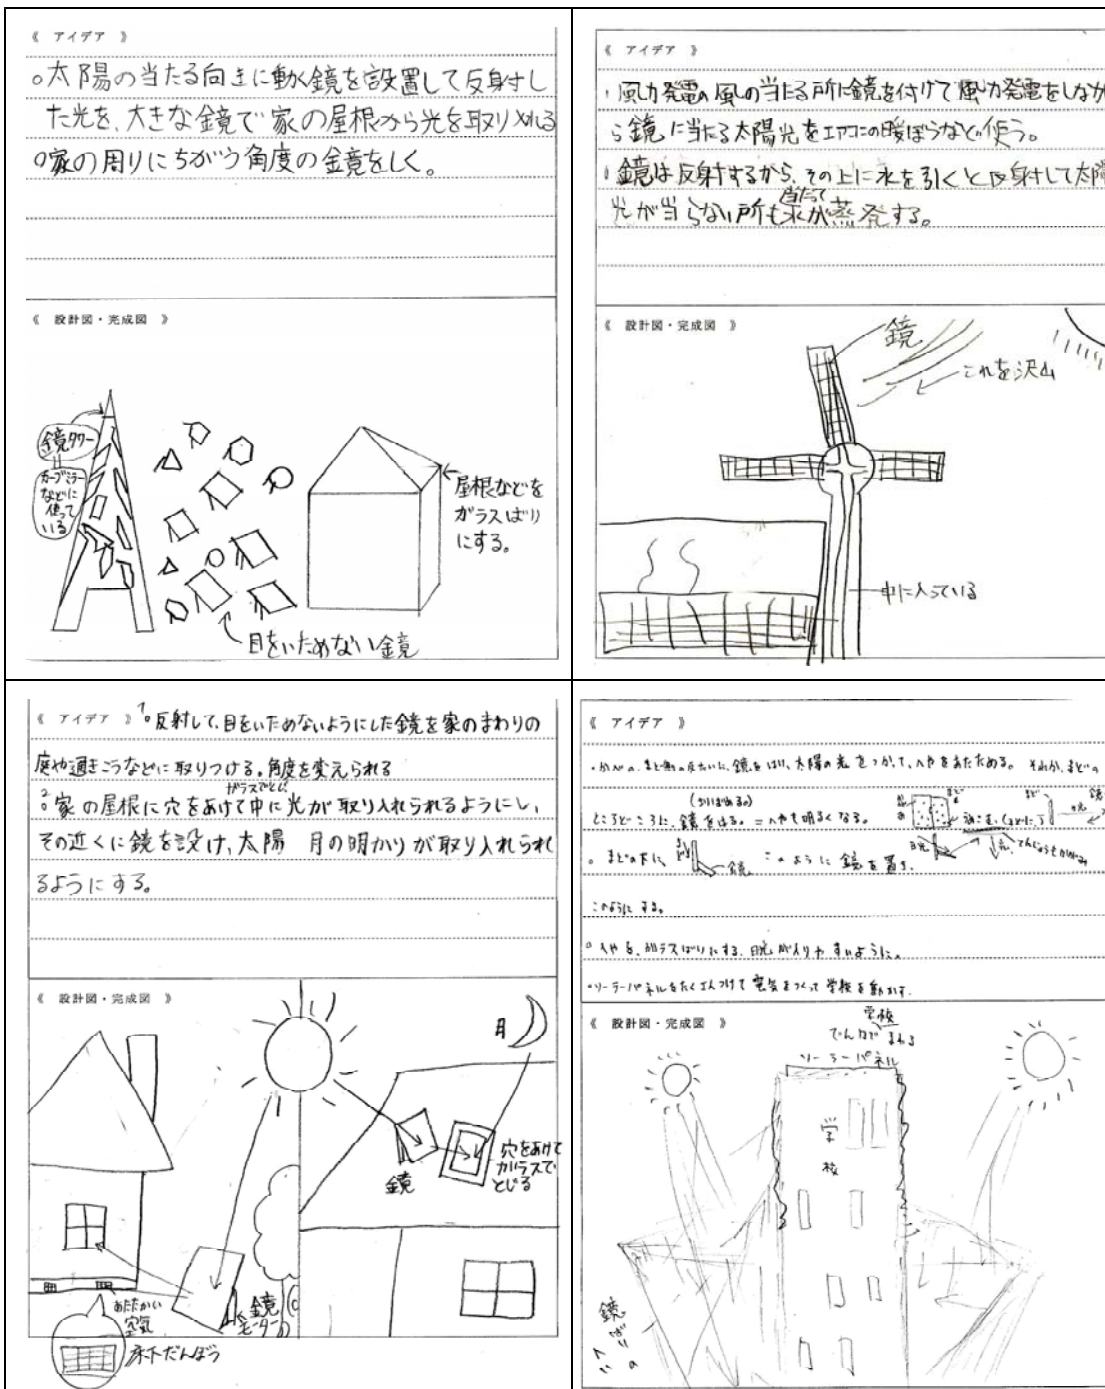 《 アイデア 》
○太陽の当たる向きに動く鏡を設置して反射し
た光を、大きな鏡で家の屋根から光を取り入れる
○家の周りにちがう角度の鏡をしく。
《 設計図・完成図 》
鏡タワー
カーブミラー
などに
使って
いる
屋根などを
ガラスばり
にする。
目をいためない鏡
《 アイデア 》
・風力発電の風の当たる所に鏡を付けて風力発電をしなが
ら鏡に当たる太陽光をエアコンの暖ぼうなどに使う。
・鏡は反射するから、その上に水を引くと反射して太陽
光が当らない所も当たって水が蒸発する。
《 設計図・完成図 》
鏡
これを沢山
中に入っている
《 アイデア 》 1○反射して、目をいためないようにした鏡を家のまわりの
庭や通きこうなどに取りつける。角度を変えられる
2○家の屋根に穴をあけてガラスでとじ中に光が取り入れられるようにし、
その近くに鏡を設け、太陽 月の明かりが取り入れられ
るようにする。
《 設計図・完成図 》
月
鏡
穴をあけて
ガラスで
とじる
鏡
モーター
あたたかい
空気
床下だんぼう
《 アイデア 》
・かべの、まど側の反たいに、鏡をはり、太陽の光をつかって、へやをあたためる。それか、まどの
ところどころに、鏡をはる。=へやも明るくなる。
まど
鏡
日光
○まどの下に、
まど
鏡
このように鏡を置き、
このようにする。
○へやを、ガラスばりにする。日光が入りやすいように。
○ソーラーパネルをたくさんつけて電気をつくって学校を動かす。
《 設計図・完成図 》
学校
でん力でまわる
ソーラーパネル
学
校
鏡ばりの